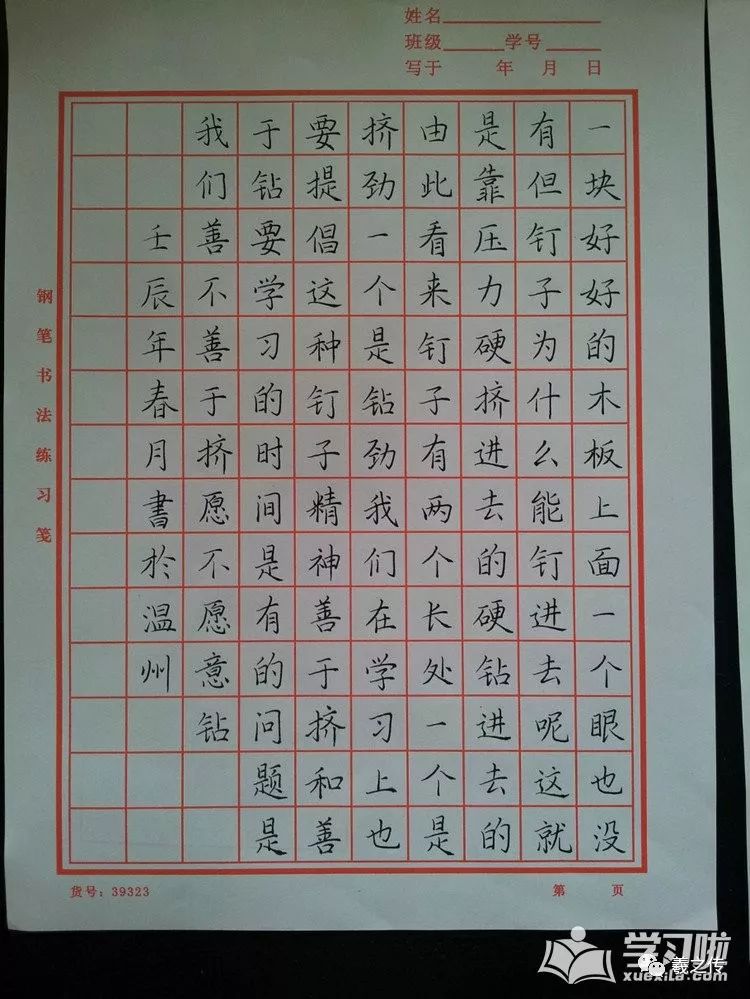 姓名
班级 学号
写于 年 月 日
一块好好的木板上面一个眼也没
有但钉子为什么能钉进去呢这就
是靠压力硬挤进去的硬钻进去的
由此看来钉子有两个长处一个是
挤劲一个是钻劲我们在学习上也
要提倡这种钉子精神善于挤和善
于钻要学习的时间是有的问题是
我们善不善于挤愿不愿意钻
壬辰年春月書於温州
钢笔书法练习笺
货号：39323
第 页
学习啦
xuexila.com
羲之传